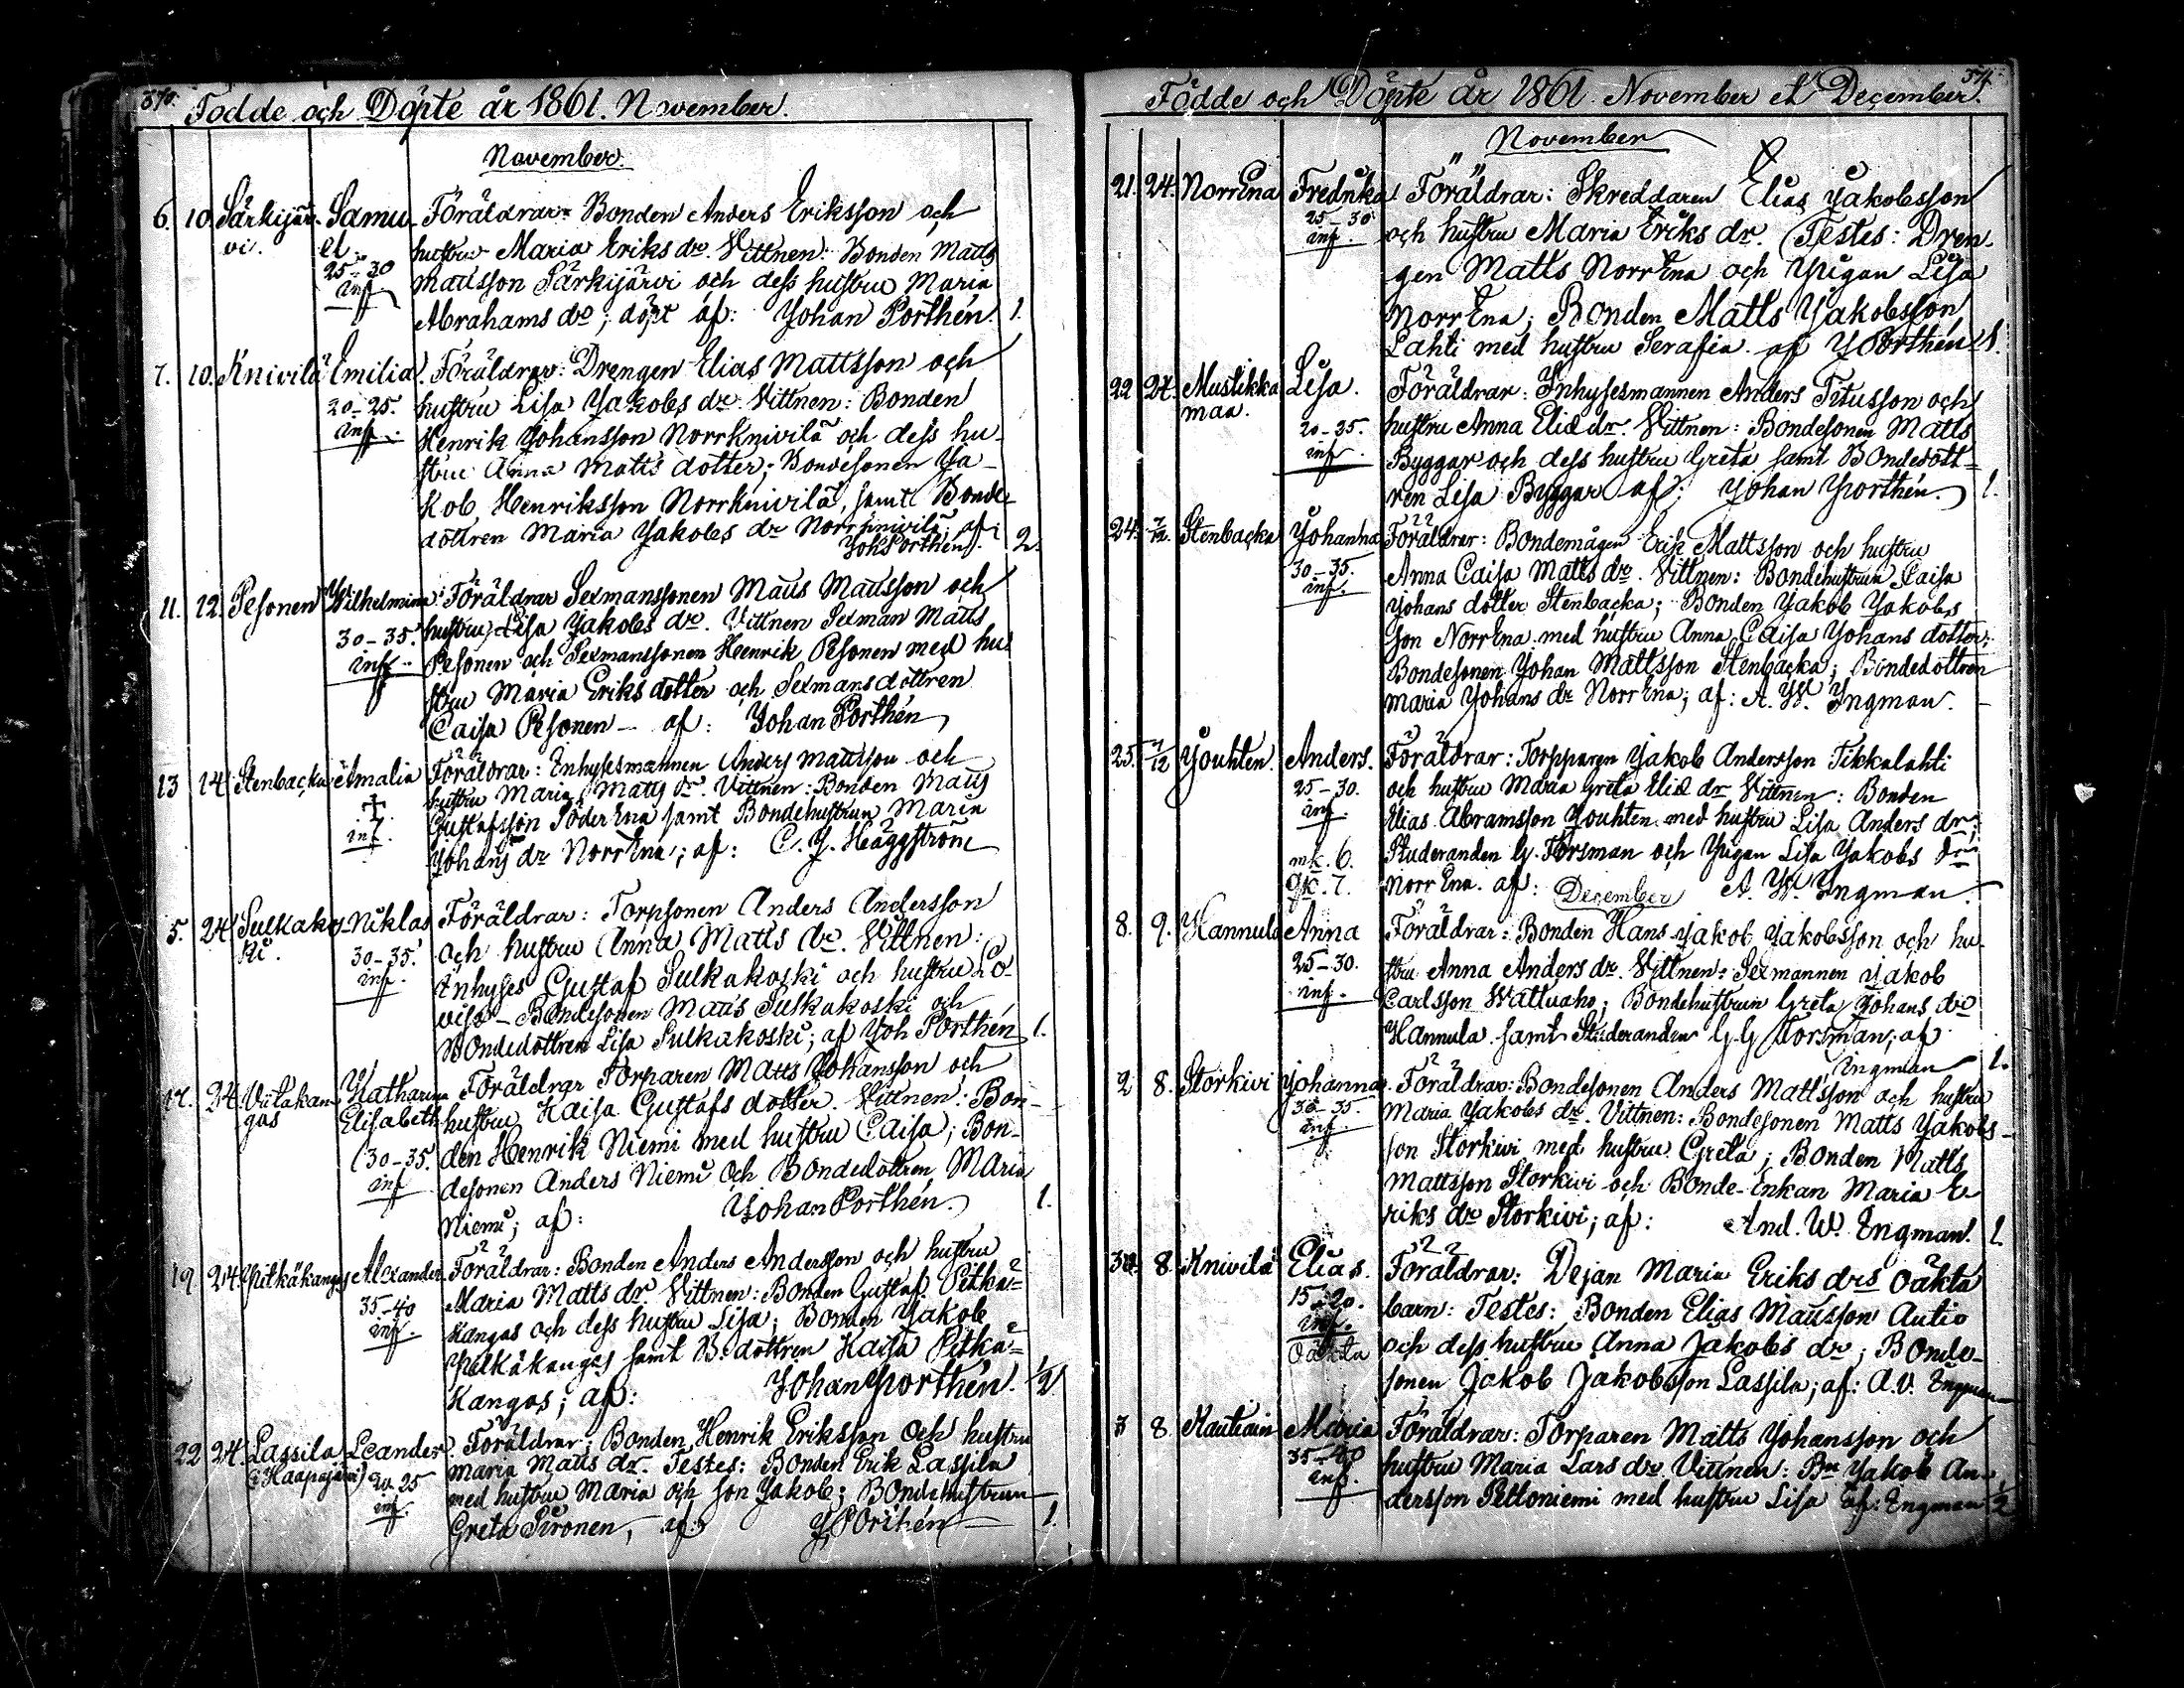 370.
Födde och Döpte år 1861. November.
November.
6. 10. Särkijär- Samu- Föräldrar: Bonden Anders Eriksson och
vi. el. hustru Maria Eriks dr. Vittnen: Bonden Matts
25-30 Mattsson Särkijärvi och dess hustru Maria
inf. Abrahams dr; döpt af: Johan Porthén. 1.
7. 10. Knivilä Emilia. Föräldrar: Drengen Elias Mattsson och
20-25. hustru Lisa Jakobs dr. Vittnen: Bonden
inf. Henrik Johansson Norrknivilä och dess hu-
stru Anna Matts dotter; Bondesonen Ja-
kob Henriksson Norrknivilä, samt Bonde-
dottren Maria Jakobs dr Norrknivilä; af:
Joh Porthén. 2.
11. 12. Pesonen Wilhelmina. Föräldrar Sexmanssonen Matts Mattsson och
30-35. hustru Lisa Jakobs dr. Vittnen Sexman Matts
inf. Pesonen och Sexmanssonen Henrik Pesonen med hu-
stru Maria Eriks dotter och Sexmansdottren
Caisa Pesonen - af: Johan Porthén
13 14 Stenbacka Amalia Föräldrar: Inhysesmannen Anders Mattsson och
† hustru Maria Matts dr. Vittnen: Bonden Matts
inf. Gustafsson Söder Ena samt Bondehustrun Maria
Johans dr Norr Ena; af: C. J. Häggström
5. 24 Sulkakos- Niklas Föräldrar: Torpsonen Anders Andersson
ki. 30-35. och hustru Anna Matts dr. Vittnen:
inf. Inhyses Gustaf Sulkakoski och hustru Lo-
visa - Bondesonen Matts Sulkakoski och
Bondedottren Lisa Sulkakoski; af Joh Porthén 1.
17. 24. Viitakan- Katharina Föräldrar Torparen Matts Johansson och
gas Elisabeth hustru Kaisa Gustafs dotter. Vittnen: Bon-
30-35. den Henrik Niemi med hustru Caisa; Bon-
inf desonen Anders Niemi och Bondedottren Maria
Niemi; af: Johan Porthén. 1.
19. 24. Pitkäkangas Alexander. Föräldrar: Bonden Anders Andersson och hustru
35-40 Maria Matts dr. Vittnen: Bonden Gustaf Pitkä-
inf. kangas och dess hustru Lisa; Bonden Jakob
Pitkäkangas samt B. dottren Kaisa Pitkä-
kangas; af: Johan Porthén. 1/2
22 24. Lassila Leander. Föräldrar: Bonden Henrik Eriksson och hustru
(i Haapajärvi) 20-25 Maria Matts dr. Testes: Bonden Erik Lassila
inf. med hustru Maria och son Jakob; Bondehustrun
Greta Sironen, af: J Porthén 1.
371.
Födde och Döpte år 1861. November et December.
November
21. 24. Norr Ena Fredrika Föräldrar: Skreddaren Elias Jakobsson
25-30 och hustru Maria Eriks dr. Testes: Dren-
inf. gen Matts Norr Ena och Pigan Lisa
Norr Ena; Bonden Matts Jakobsson
Lahti med hustru Serafia. af J Porthén 1.
22 24. Mustikka Lisa. Föräldrar: Inhysesmannen Anders Titusson och
maa. 20-25. hustru Anna Eliæ dr. Vittnen: Bondesonen Matts
inf. Byggar och dess hustru Greta samt Bondedott-
ren Lisa Byggar af: Johan Porthén. 1.
24. 7/12. Stenbacka Johanna Föräldrar: Bondemågen Erik Mattsson och hustru
30-35. Anna Caisa Matts dr. Vittnen: Bondehustrun Caisa
inf. Johans dotter Stenbacka; Bonden Jakob Jakobs
son Norr Ena med hustru Anna Caisa Johans dotter;
Bondesonen Johan Mattsson Stenbacka; Bondedottren
Maria Johans dr Norr Ena; af: A. W. Ingman.
25. 7/12 Jouhten. Anders. Föräldrar: Torpparen Jakob Andersson Tikkalahti
25-30. och hustru Maria Greta Eliæ dr Vittnen: Bonden
inf. Elias Abramsson Jouhten med hustru Lisa Anders dr;
mk. 6. Studeranden G. Forsman och Pigan Lisa Jakobs dr
qk. 7. Norr Ena. af: A. W. Ingman.
December
8. 9. Hannula Anna Föräldrar: Bonden Hans Jakob Jakobsson och hu-
25-30. stru Anna Anders dr. Vittnen: Sexmannen Jakob
inf. Carlsson Wattuaho; Bondehustrun Greta Johans dr
Hannula samt Studeranden G. G Forsman; af
Ingman 1.
2 8. Storkivi Johanna. Föräldrar: Bondesonen Anders Mattsson och hustru
30-35. Maria Jakobs dr. Vittnen: Bondesonen Matts Jakobs-
inf. son Storkivi med hustru Greta; Bonden Matts
Mattsson Storkivi och Bonde-Enkan Maria E-
riks dr Storkivi; af: And. W. Engman. 1.
30. 8. Knivilä Elias. Föräldrar: Pejan Maria Eriks drs oäkta
15-20. barn: Testes: Bonden Elias Mattsson Autio
inf. och dess hustru Anna Jakobs dr; Bonde-
Oäkta sonen Jakob Jakobsson Lassila; af: A.V. Engman
3 8. Kautiain Maria Föräldrar: Torparen Matts Johansson och
35-40 hustru Maria Lars dr Vittnen: Bn Jakob An-
inf. dersson Peltoniemi med hustru Lisa af: Engman 1/2